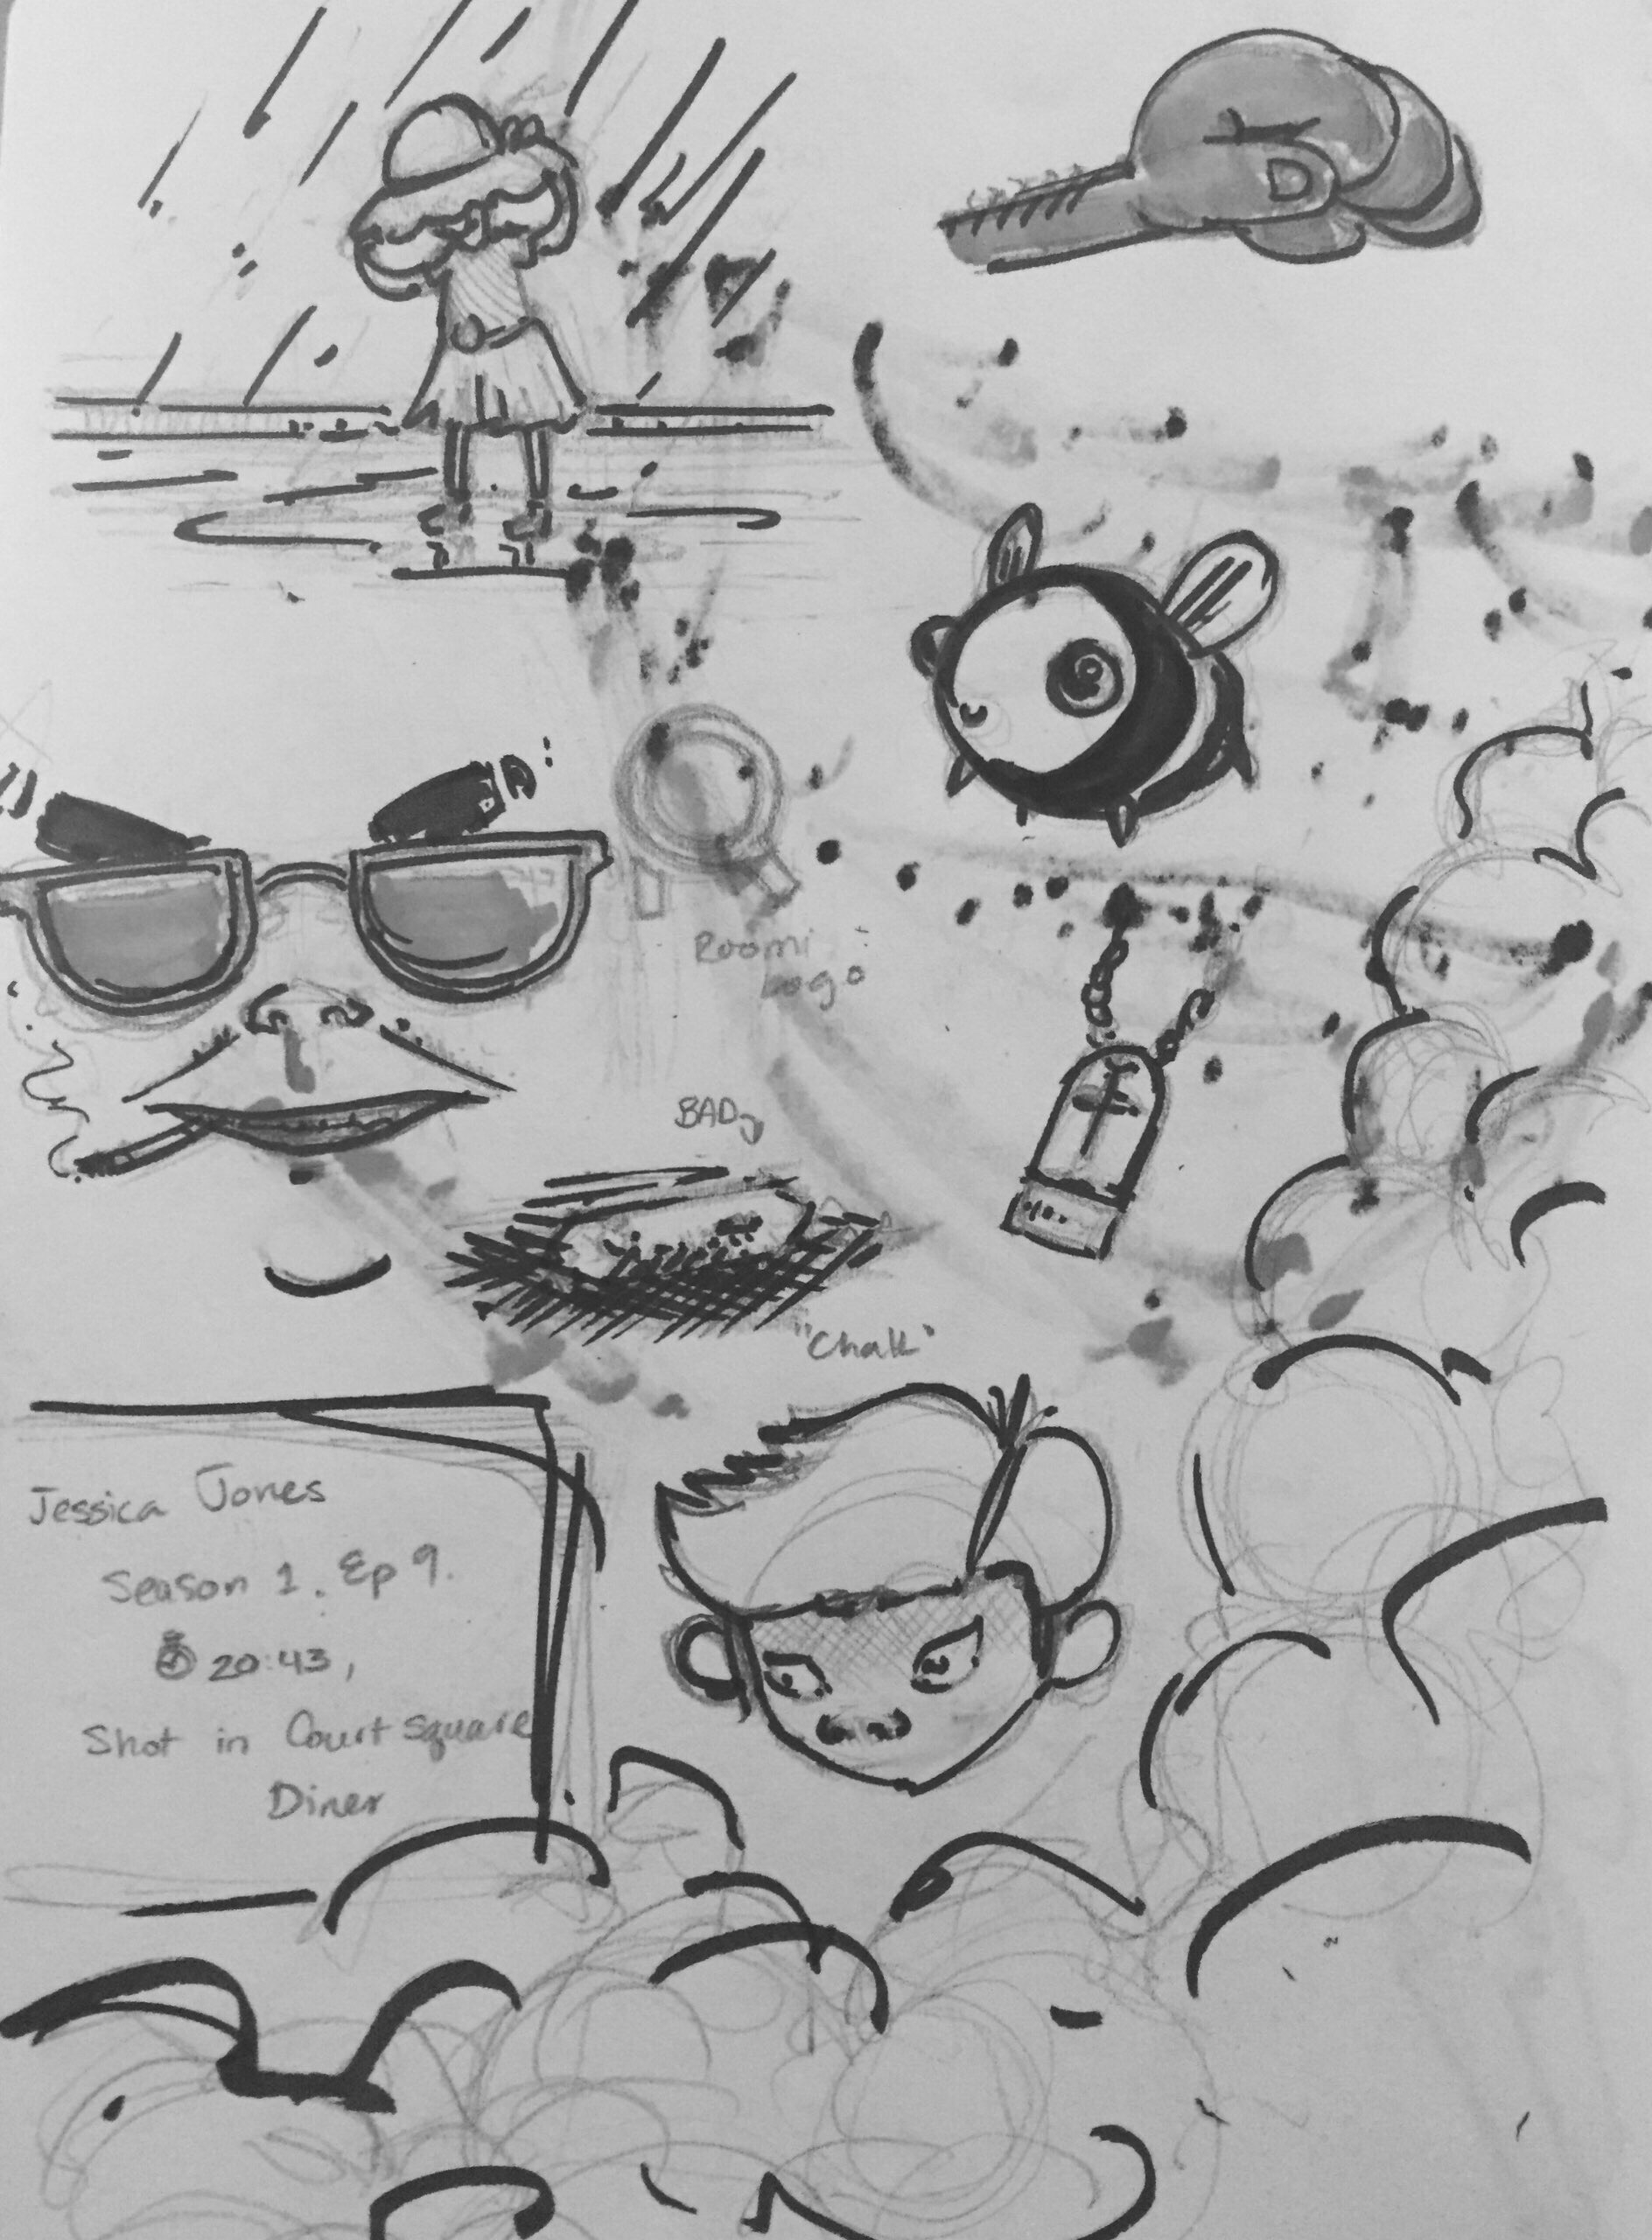 Roomi
Logo
BAD
"Chalk"
Jessica Jones
Season 1. Ep 9.
20:43,
Shot in Court square
Diner